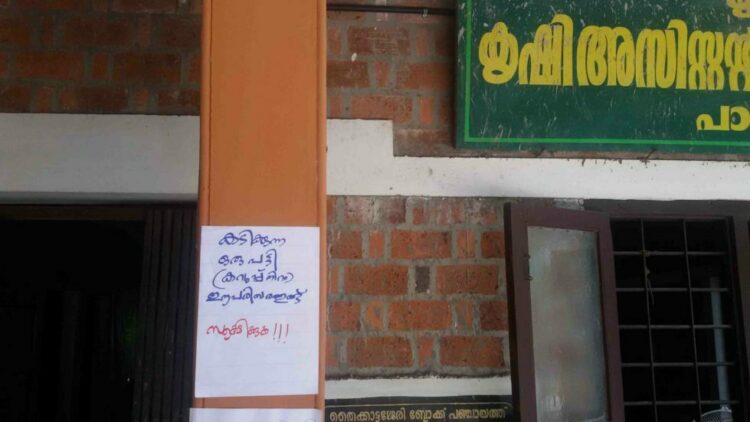 കൃഷി അസിസ്റ്റന്റ്
പാ
കടിക്കുന്ന
ഒരു പട്ടി
(കറുപ്പ് നിറം)
ഈ പരിസരത്തുണ്ട്
സൂക്ഷിക്കുക !!!
തൈക്കാട്ടുശ്ശേരി ബ്ലോക്ക് പഞ്ചായത്ത്